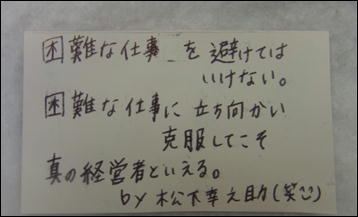 困難な仕事 を 避けては
いけない。
困難な仕事に 立ち向かい
克服してこそ
真の経営者といえる。
by 松下幸之助(笑)